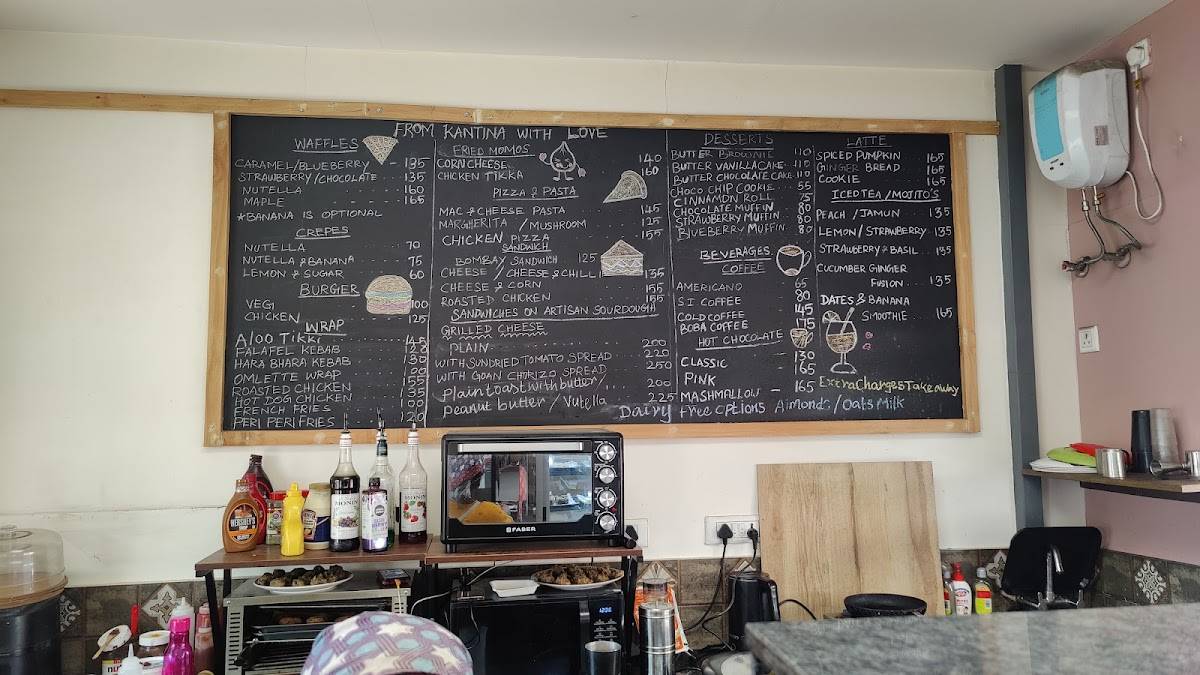 FROM KANTINA WITH LOVE
WAFFLES
CARAMEL/BLUEBERRY - 135
STRAWBERRY/CHOCOLATE 135
NUTELLA 160
MAPLE 165
*BANANA IS OPTIONAL
CREPES
NUTELLA 70
NUTELLA & BANANA 75
LEMON & SUGAR 60
BURGER
VEG 100
CHICKEN 125
WRAP
Aloo Tikki 145
FALAFEL KEBAB
HARA BHARA KEBAB 130
OMLETTE WRAP
ROASTED CHICKEN 155
HOT DOG CHICKEN 135
FRENCH FRIES 100
PERI PERI FRIES 120
FRIED MOMOS
CORN CHEESE 140
CHICKEN TIKKA 160
PIZZA & PASTA
MAC & CHEESE PASTA 145
MARGHERITA / MUSHROOM 125
CHICKEN PIZZA 155
SANDWICH
BOMBAY SANDWICH 125
CHEESE / CHEESE & CHILLI 135
CHEESE & CORN 155
ROASTED CHICKEN 155
SANDWICHES ON ARTISAN SOURDOUGH
GRILLED CHEESE
PLAIN 200
WITH SUNDRIED TOMATO SPREAD 220
WITH GOAN CHORIZO SPREAD 250
Plain toast with butter/ 200
peanut butter / Nutella 225
DESSERTS
BUTTER BROWNIE 110
BUTTER VANILLA CAKE 110
BUTTER CHOCOLATE CAKE 110
CHOCO CHIP COOKIE 55
CINNAMON ROLL 75
CHOCOLATE MUFFIN 80
STRAWBERRY MUFFIN 80
BLUEBERRY MUFFIN 80
BEVERAGES
COFFEE
AMERICANO 65
S.I COFFEE 80
COLD COFFEE 145
BOBA COFFEE 175
HOT CHOCOLATE
CLASSIC - 130
PINK 165
MASHMALLOW - 165
LATTE
SPICED PUMPKIN 165
GINGER BREAD 165
COOKIE 165
ICED TEA / MOJITO'S
PEACH / JAMUN 135
LEMON / STRAWBERRY 135
STRAWBERRY & BASIL 135
CUCUMBER GINGER
FUSION 135
DATES & BANANA
SMOOTHIE 165
Extra Charges Take away
Dairy free options Almonds / Oats Milk
HERSHEY'S
MONIN
FABER